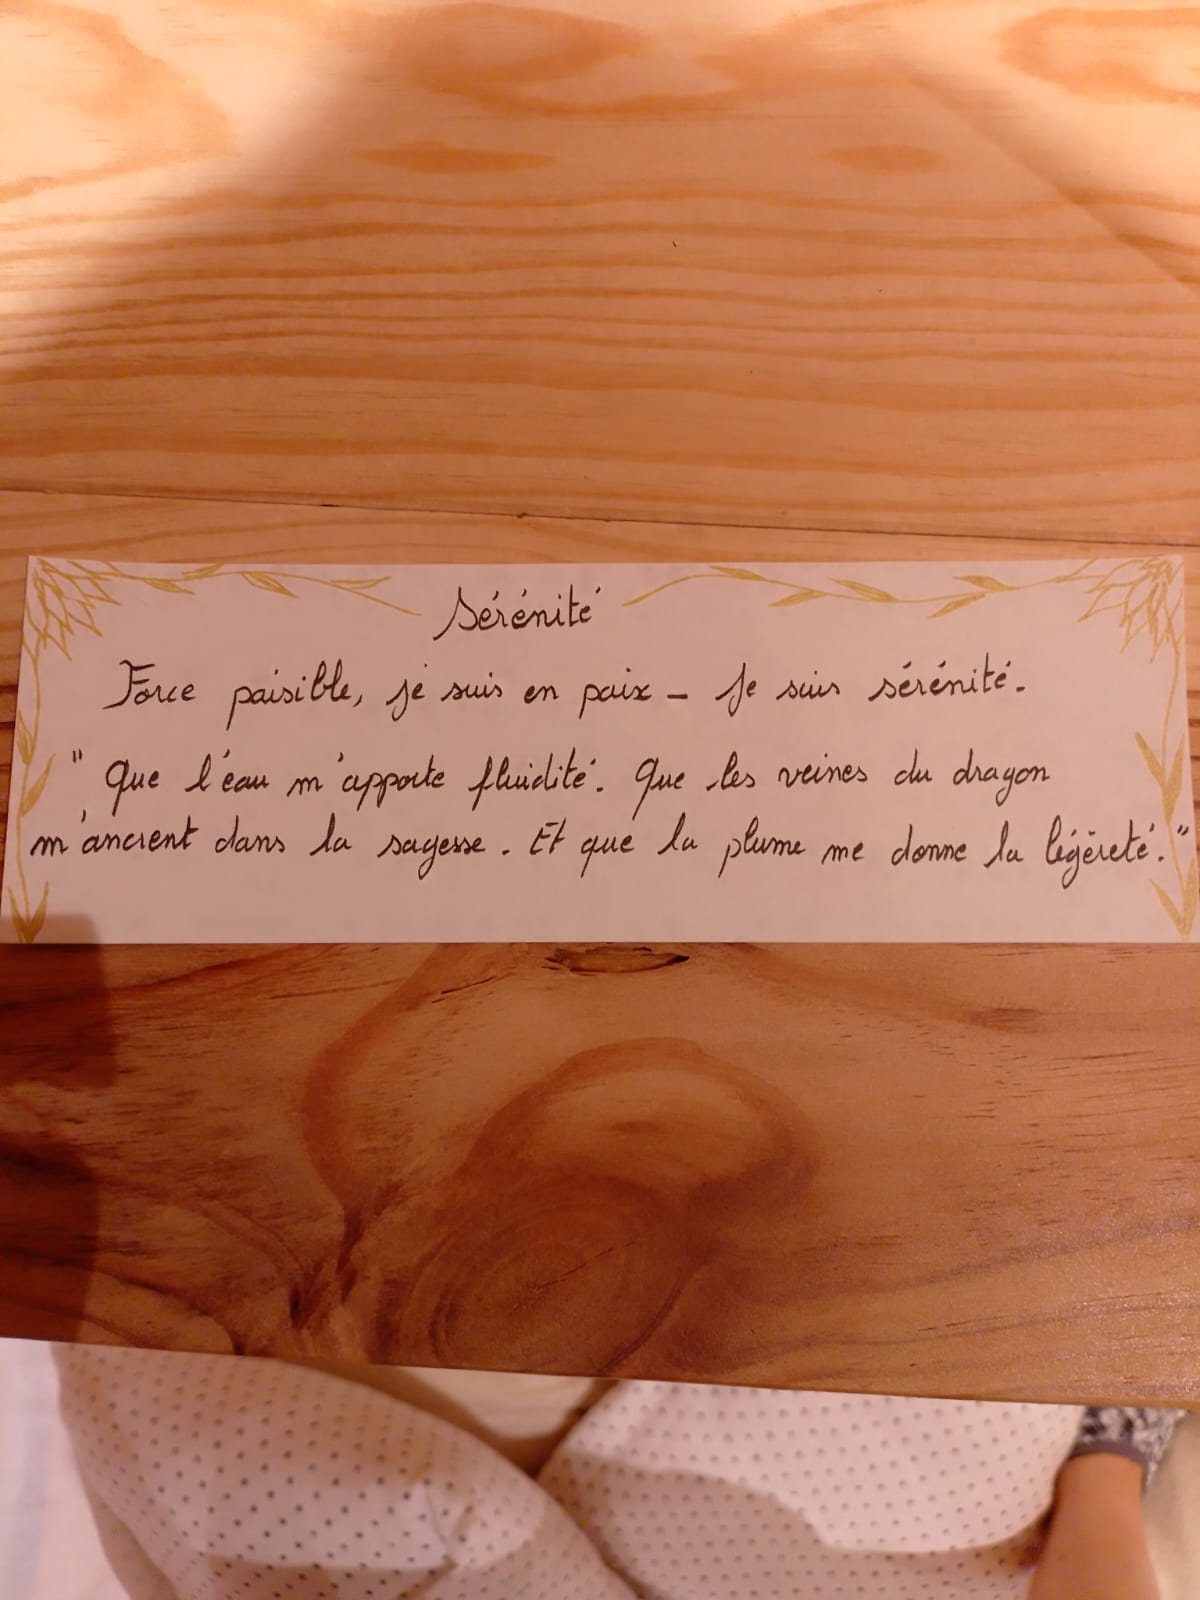 Sérénité
Force paisible, je suis en paix - Je suis sérénité.
" Que l'eau m'apporte fluidité. Que les veines du dragon
m'ancrent dans la sagesse. Et que la plume me donne la légèreté."